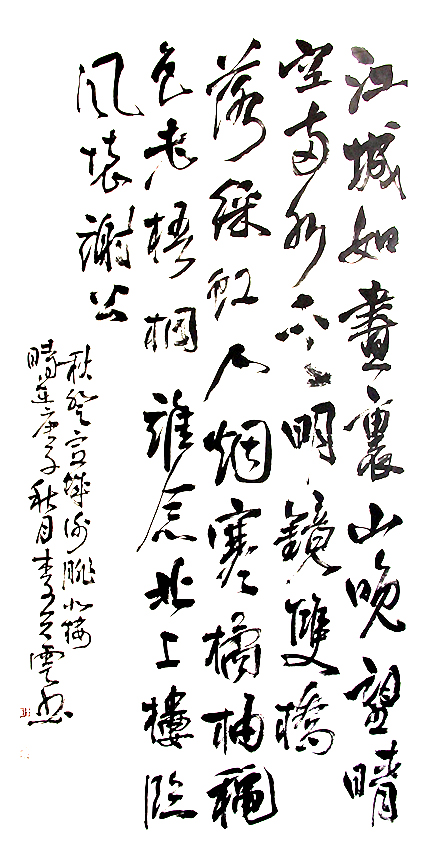 江城如畫裏山晚望晴
空兩水夾明鏡雙橋
落綵虹人烟寒橘柚穐
色老梧桐誰念北上樓臨
風懷謝公
秋登宣城谢朓北樓
時庚子秋月李雲書